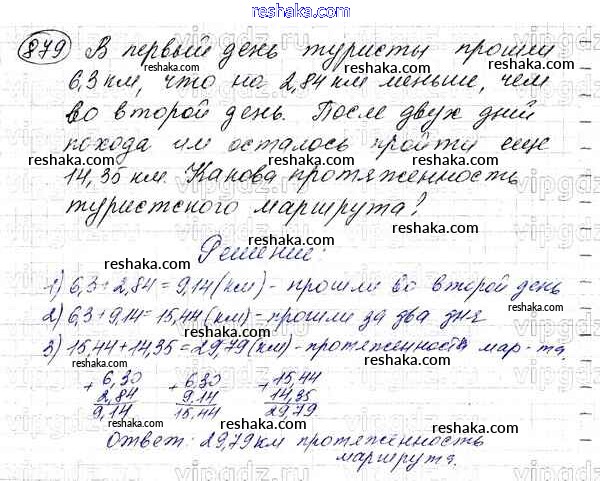 reshaka.com
879 В первый день туристы прошли
reshaka.com
6,3 км, что на 2,84 км меньше, чем
reshaka.com reshaka.com
во второй день. После двух дней
похода им осталось пройти еще
reshaka.com reshaka.com reshaka.com
14,35 км. Какова протяженность
reshaka.com
туристского маршрута?
reshaka.com reshaka.com
Решение:
reshaka.com
1) 6,3+2,84=9,14(км)-прошли во второй день
reshaka.com reshaka.com
2) 6,3+9,14=15,44(км)-прошли за два дня
reshaka.com
3) 15,44+14,35=29,79(км)-протяженность мар-та.
reshaka.com reshaka.com reshaka.com
+ 6,30 + 6,30 + 15,44
2,84 9,14 14,35
reshaka.com
9,14 15,44 29,79
reshaka.com reshaka.com
Ответ: 29,79 км протяженность
reshaka.com
маршрута.
reshaka.com reshaka.com